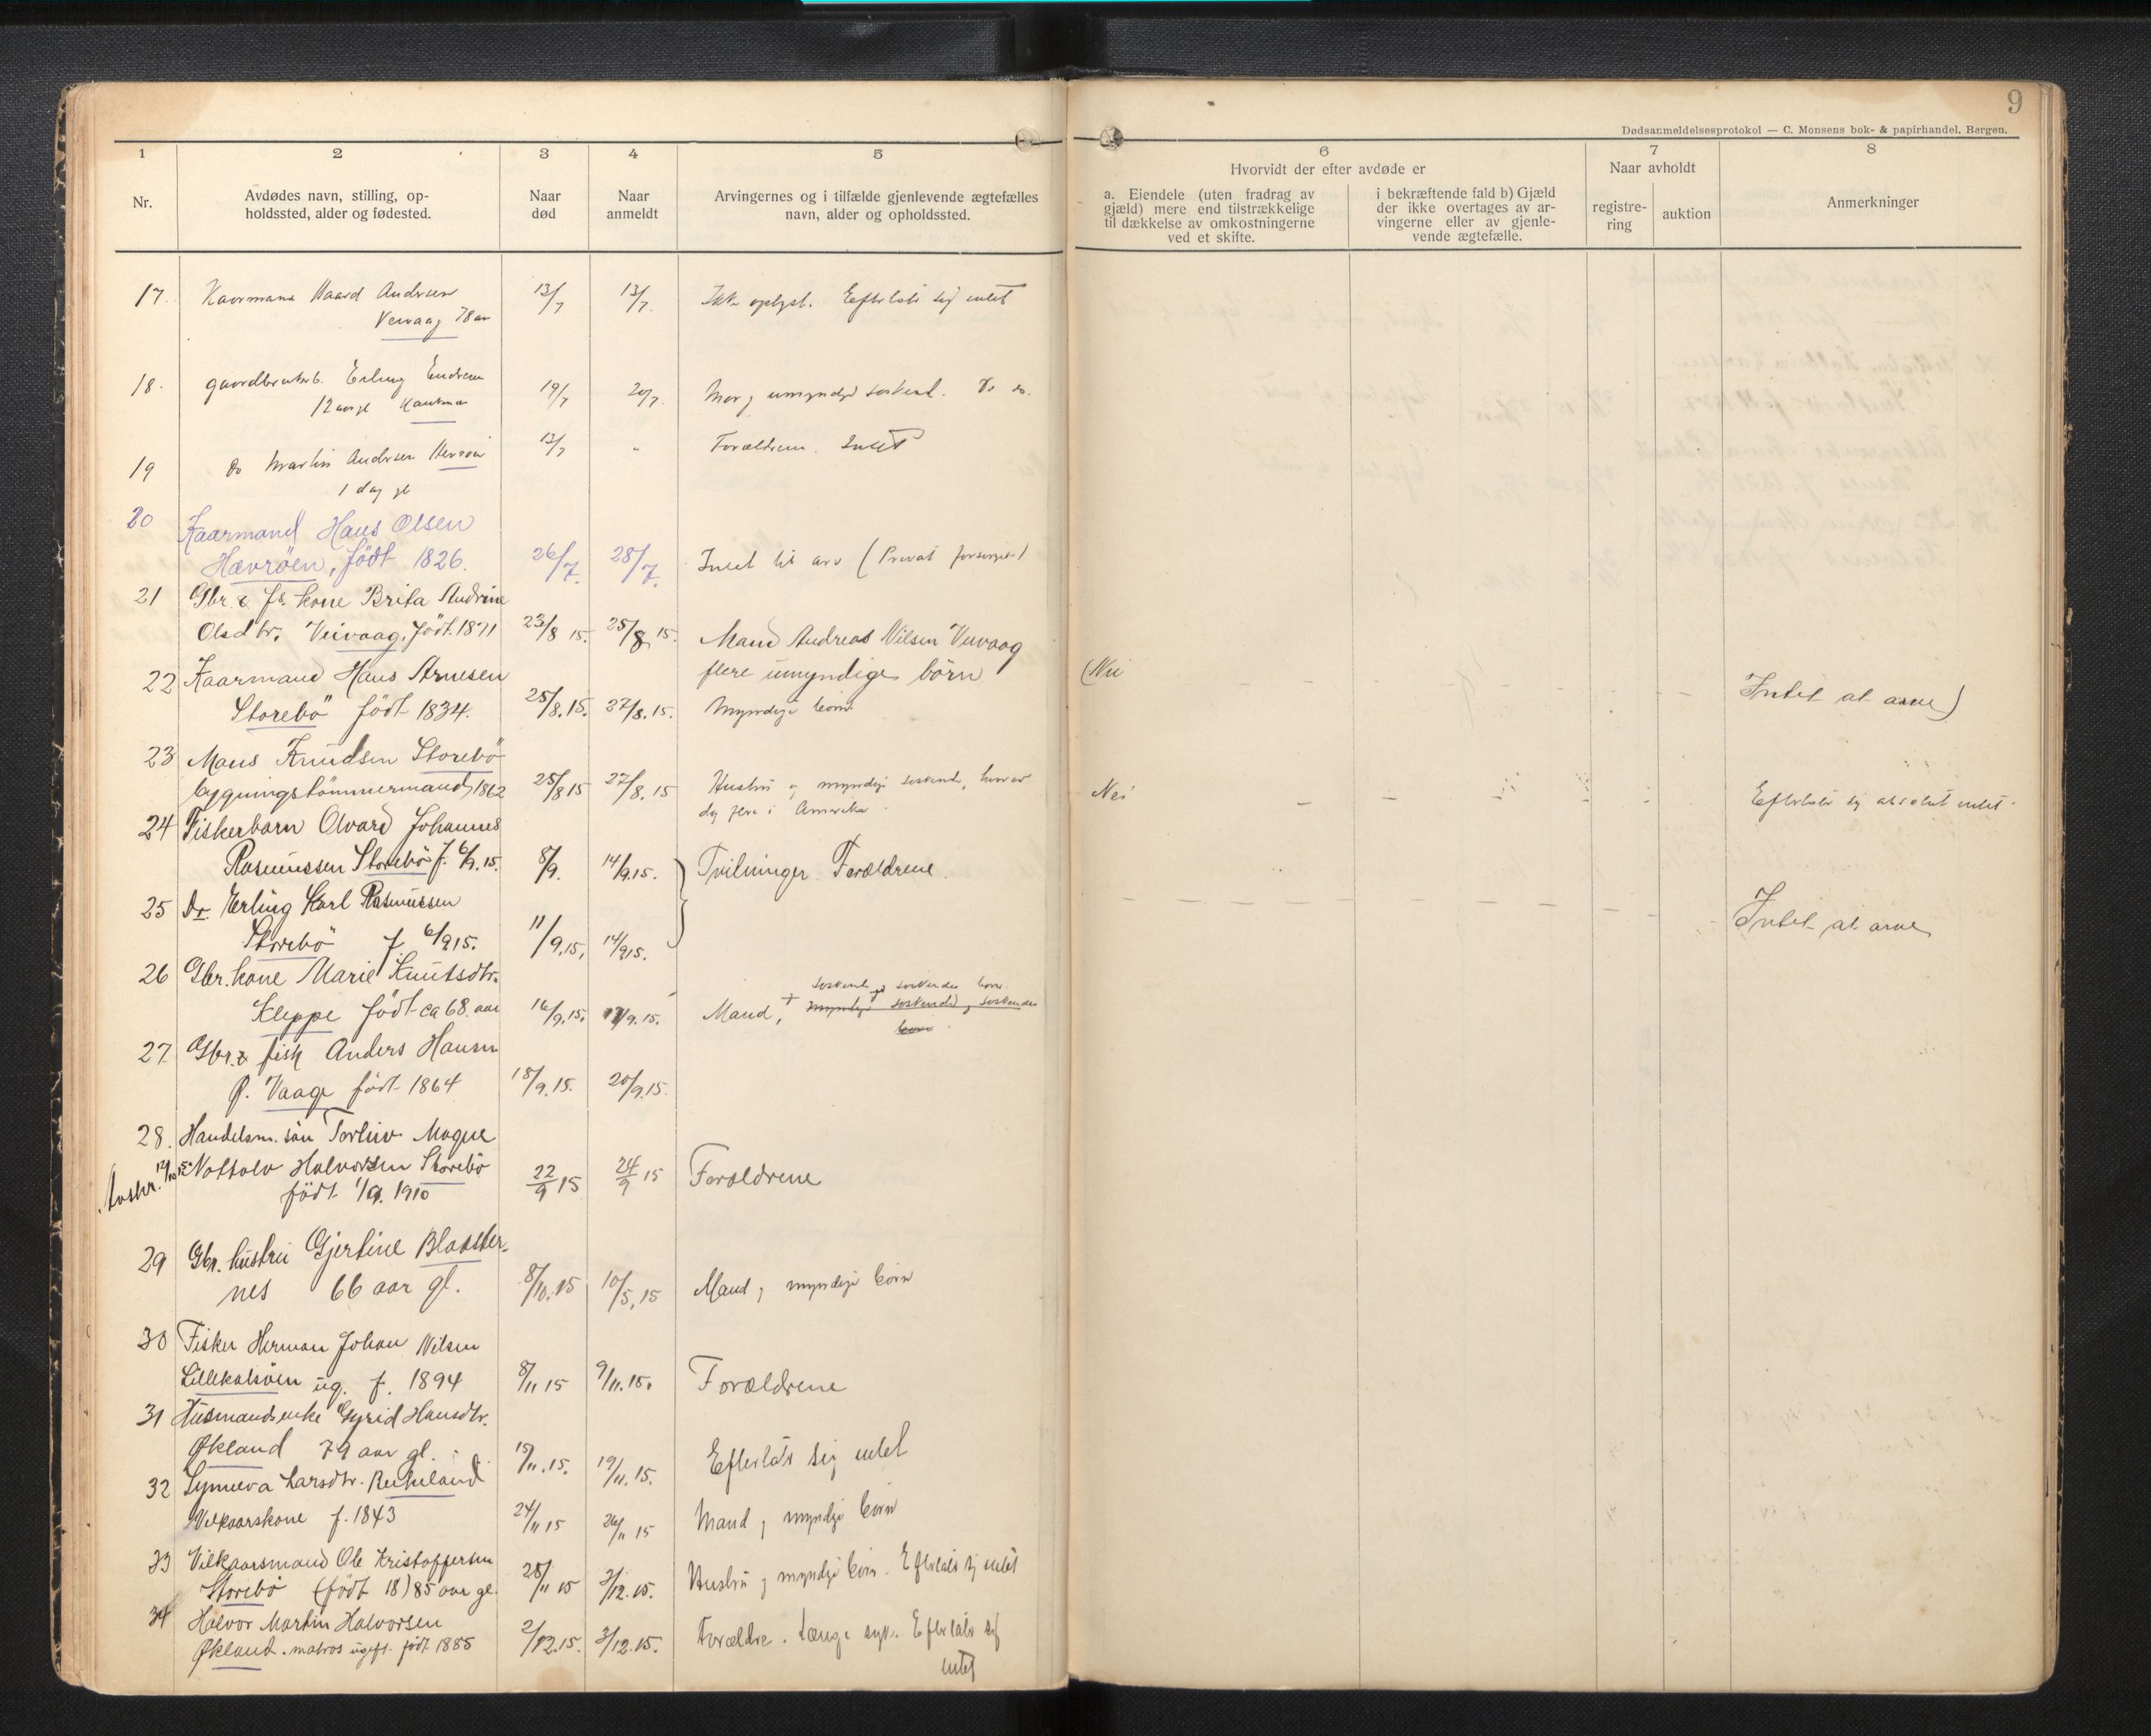 9
Dødsanmeldelsesprotokol — C. Monsens bok- & papirhandel, Bergen.
1
2
3
4
5
6
7
8
Nr.
Avdødes navn, stilling, op-
holdssted, alder og fødested.
Naar
død
Naar
anmeldt
Arvingernes og i tilfælde gjenlevende ægtefælles
navn, alder og opholdssted.
Hvorvidt der efter avdøde er
a. Eiendele (uten fradrag av
gjæld) mere end tilstrækkelige
til dækkelse av omkostningerne
ved et skifte.
i bekræftende fald b) Gjæld
der ikke overtages av ar-
vingerne eller av gjenle-
vende ægtefælle.
Naar avholdt
registre-
ring
auktion
Anmerkninger
17. Kaarmand Andersen 13/7 13/7. Ikke oplyst. Efterlater sig intet
Veivaag 78 aar
18. gaardbrukerb. Erling Endresen 19/7 20/7. Mor og umyndige søskend. Do do.
12 aar gl
19 Do Martin Andersen 13/7 " Forældrene. Intet
1 dag gl
20 Kaarmand Hans Olsen
Hævröen, födt 1826. 26/7. 28/7. Intet til arv (Privat forsørget)
21 Gbr. & fs. kone Brita Andrine
Olsdtr. Veivaag, födt. 1871 23/8 15. 25/8 15. Mand Andreas Nilsen Veivaag
flere umyndige börn
22 Kaarmand Hans Arnesen (Nei Intet at arve)
Storebö födt 1834. 25/8.15. 27/8.15. Myndige börn
23 Maus Knudsen Storebö
bygningstömmermand, 1862 25/8 15 27/8.15 Hustru og myndige søskend, hvorav
dog flere i Amerika. Nei Efterlater sig absolut intet.
24 Fiskerbarn Olvard Johannes
Rasmussen Storebö f. 6/9.15. 8/9. 14/9.15. Tvilninger. Forældrene.
25 Do. Erling Karl Rasmussen Intet at arve
Storebö f. 6/9 15. 11/9.15. 14/9 15.
26 Gbr. kone Marie Knutsdtr. søskend og søskendes börn
Kleppe födt ca 68. aar 16/9.15. 17/9.15. Mand, + myndige søskende og søskendes
börn
27 Gbr. & fisk Anders Hansen
Ø. Vaage födt 1864 18/9.15. 20/9.15.
28. Handelsm. sön Torleiv Magne
Nottolv Halvorsen Storebö 22/9 15 24/9 15 Forældrene
födt 1/9. 1910
29 Gbr. hustru Gjertine Blaaster-
nes 66 aar gl. 8/10.15 10/5.15 Mand og myndige börn
30 Fisker Herman Johan Nilsen
Lillekalsöen ug. f. 1894 8/11 15 9/11.15. Forældrene
31 Husmandsenke Gyrid Hansdtr.
Økland 79 aar gl. 15/11.15. 19/11.15. Efterlater sig intet
32 Synneva Larsdtr. Birkeland
Vilkaarskone f. 1843 24/11 15 26/11 15 Mand og myndige börn
33 Vilkaarsmand Ole Kristoffersen
Storebö (födt 18) 85 aar gl. 28/11 15 3/12.15. Hustru og myndige börn. Efterlater sig intet
34 Halvor Martin Halvorsen
Økland. matros ugift. födt 1885 2/12.15. 3/12.15. Forældre. Længe syk. Efterlater sig
intet